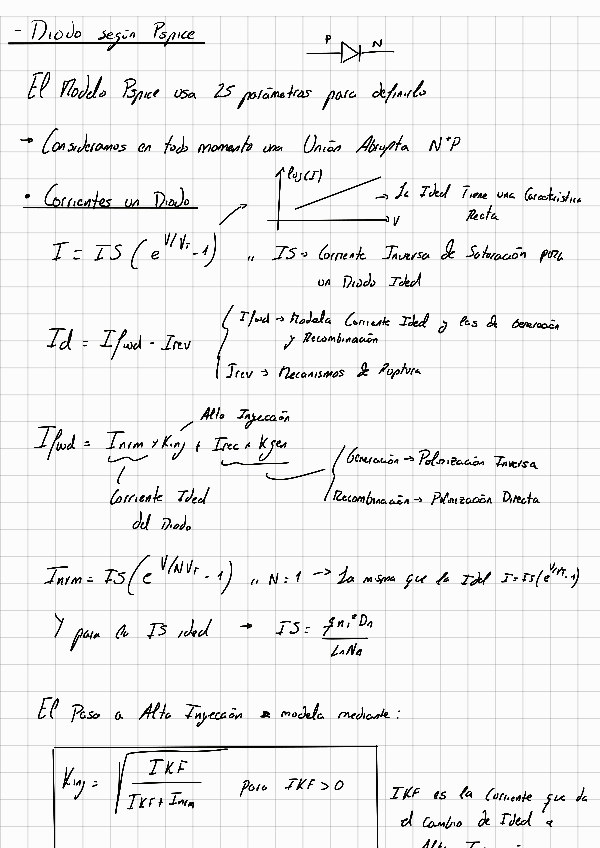 - Diodo según Pspice
P N
El Modelo Pspice usa 25 parámetros para definirlo
→ Consideramos en todo momento una Unión Abrupta N⁺P
• Corrientes un Diodo
Log(I)
V
→ La Ideal Tiene una Característica
Recta
I = IS (e^(V/V_T) - 1) ,, IS → Corriente Inversa de Saturación para
un Diodo Ideal
Id = Ifwd - Irev
Ifwd → Modela Corriente Ideal y las de Generación
y Recombinación
Irev → Mecanismos de Ruptura
Alta Inyección
Ifwd = Inrm × Kinj + Irec × Kgen
Generación → Polarización Inversa
Recombinación → Polarización Directa
Corriente Ideal
del Diodo
Inrm = IS (e^(V/NV_T) - 1) ,, N = 1 → La misma que la Idel I = IS(e^(V/V_T) - 1)
Y para la IS ideal → IS = q ni² Dn / Ln Na
El Paso a Alta Inyección se modela mediante:
Kinj = √(IKF / (IKF + Inrm)) para IKF > 0
IKF es la Corriente que da
el cambio de Ideal a
Alta